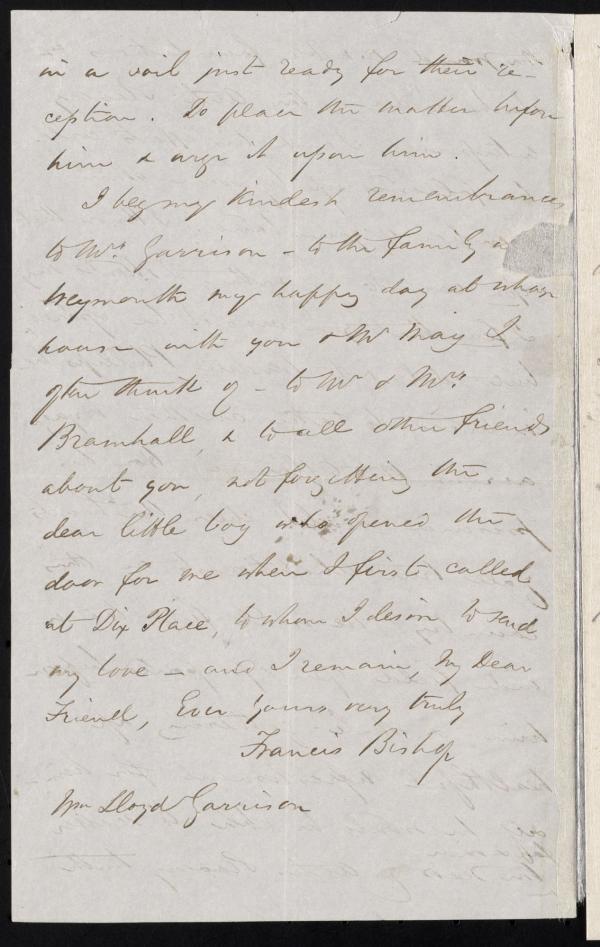 in a soil just ready for their re-
ception. Do place the matter before
him & urge it upon him.
I beg my kindest remembrances
to Mrs. Garrison - to the family a
Weymouth my happy day at whose
house with you & Mr May I
often think of - to Mr & Mrs.
Bramhall, & to all other friends
about you, not forgetting the
dear little boy who opened the
door for me when I first called
at Dix Place, to whom I desire to send
my love - and I remain, My Dear
Friend, Ever Yours very truly
Francis Bishop
Wm Lloyd Garrison